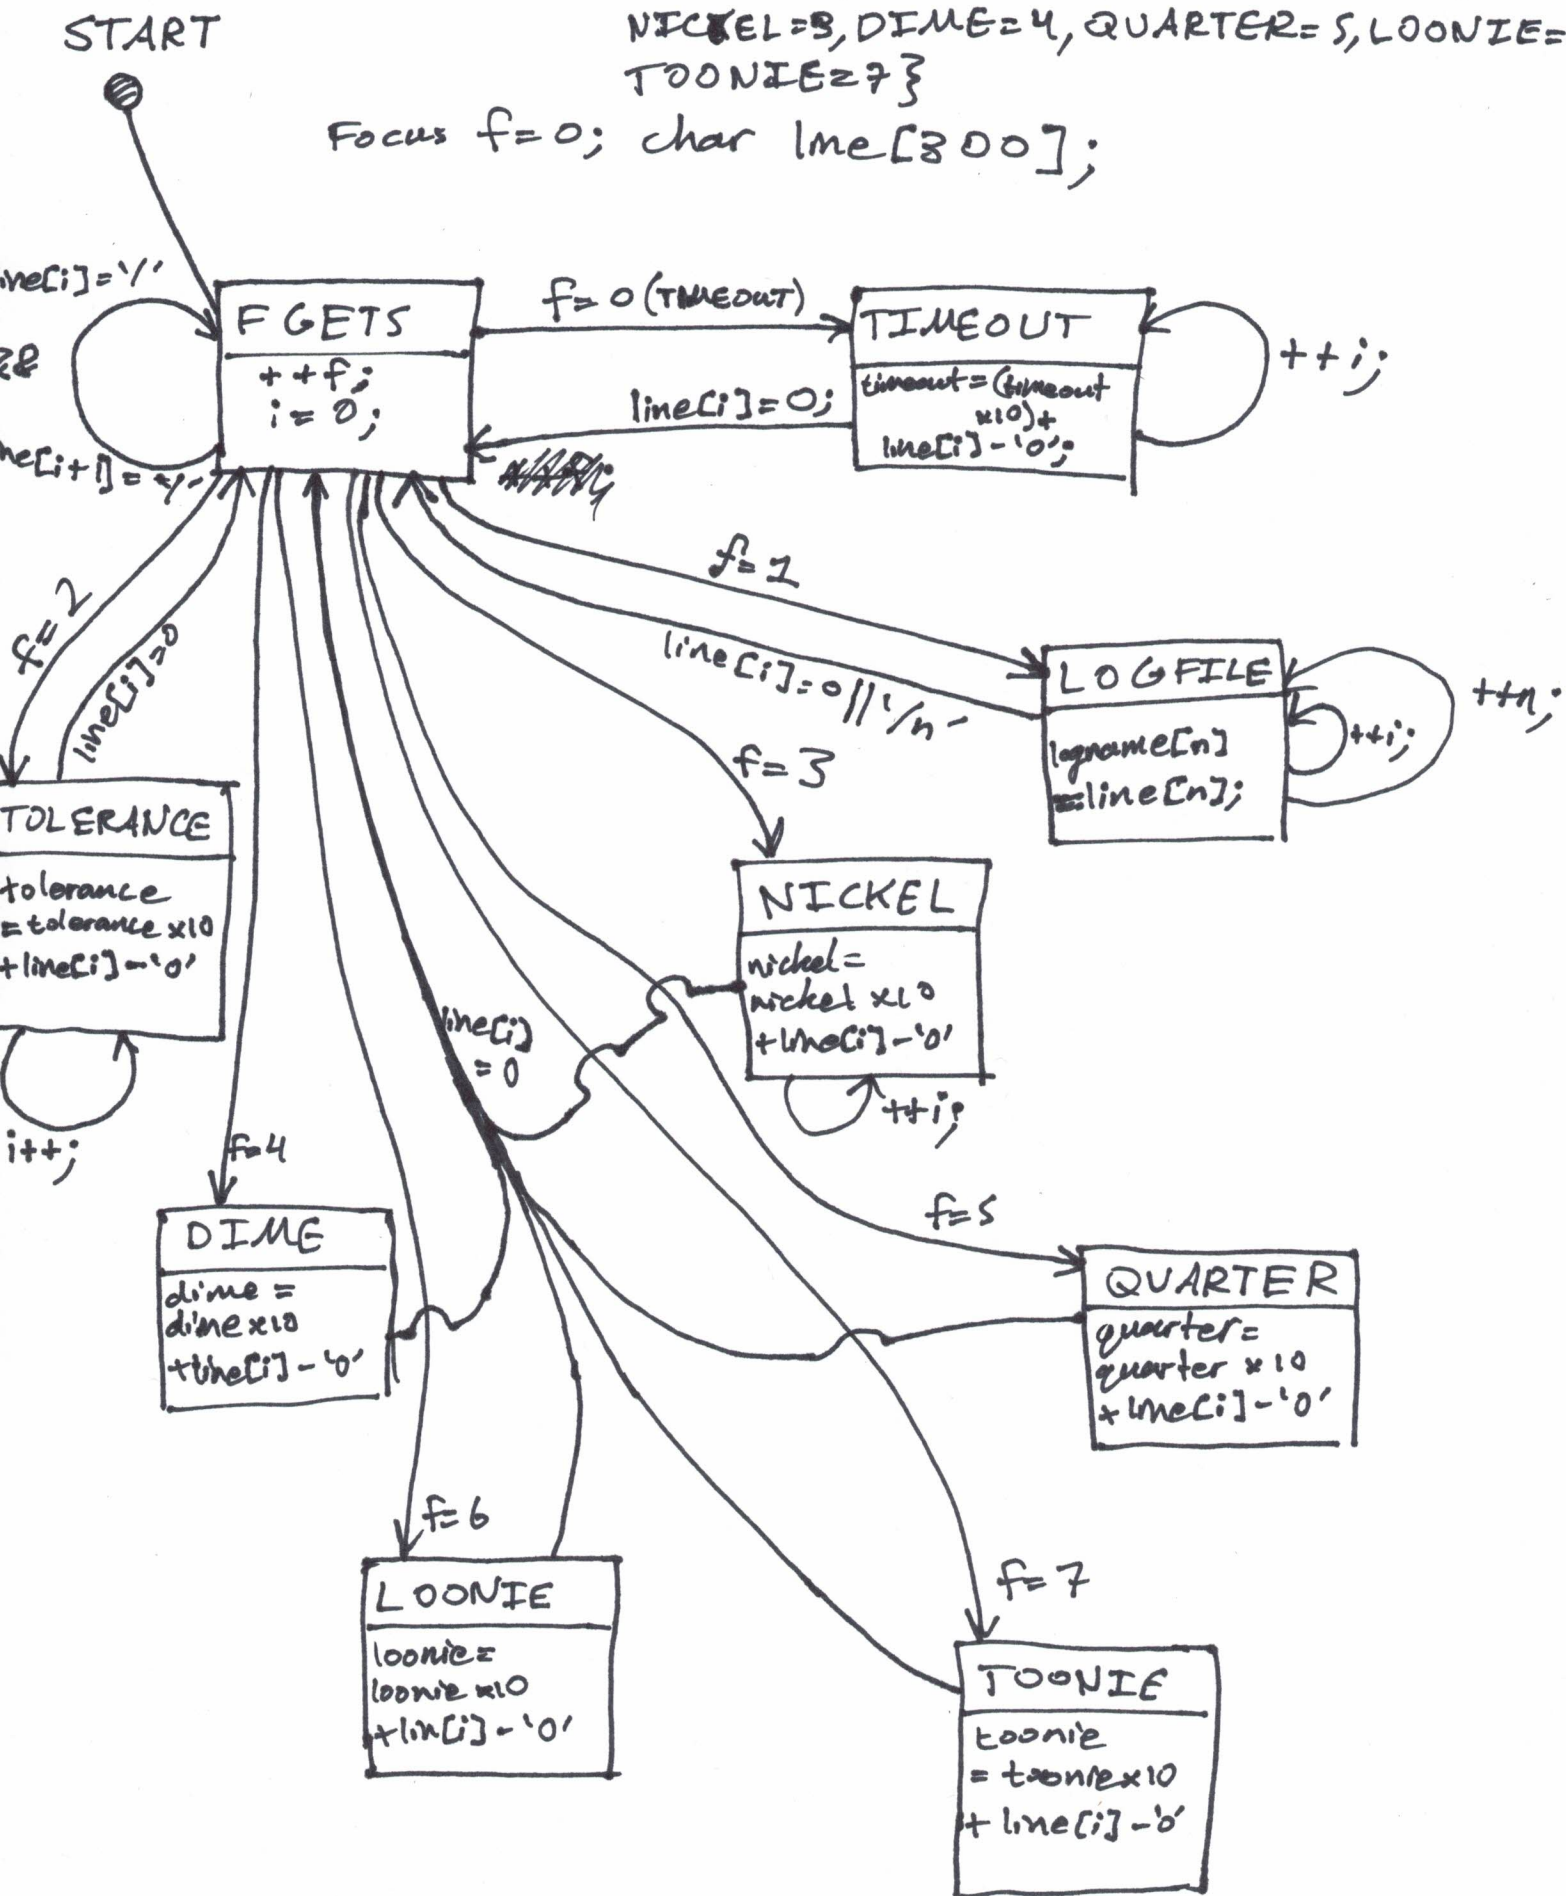 START
NICKEL=3, DIME=4, QUARTER=5, LOONIE=
TOONIE=7}
Focus f=0; char line[300];
ine[i]='/'
&&
ne[i+1]='/'
FGETS
++f;
i=0;
f=0 (TIMEOUT)
line[i]=0;
TIMEOUT
timeout=(timeout
x10)+
line[i]-'0';
++i;
f=1
line[i]=0||'/n'
LOGFILE
logname[n]
=line[n];
++i;
++n;
f=2
line[i]=0
TOLERANCE
tolerance
=tolerance x10
+line[i]-'0'
i++;
f=3
NICKEL
nickel=
nickel x10
+line[i]-'0'
++i;
line[i]
=0
f=4
DIME
dime=
dime x10
+line[i]-'0'
f=5
QUARTER
quarter=
quarter x10
+line[i]-'0'
f=6
LOONIE
loonie=
loonie x10
+lin[i]-'0'
f=7
TOONIE
toonie
=toonie x10
+line[i]-'0'